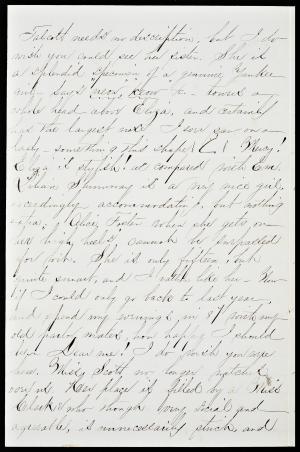 Talcott needs no description, but I do
wish you could see her sister. She is
a splendid specimen of a genuine Yankee
says "neow, keow" &c - towers a
whole head above Eliza, and certainly
has the largest nose I ever saw on a
lady - something this shape Mercy!
Eliza is stylish! as compared with Em.
Lilian is a very nice girl,
exceedingly accommodating, but nothing
extra. Alice Foster when she gets on
her high heels cannot be surpassed
for She is only fifteen, but
quite smart, and I rather like her - Now
if I could only go back to last year,
and spend my evenings, in 87 with my
old mates, how happy I should
be. Dear me! I do wish you were
here. Miss Scott no longer watches
over us. Her place is filled by a Miss
Clark who though very social and
agreeable, is unnecessarily strict and